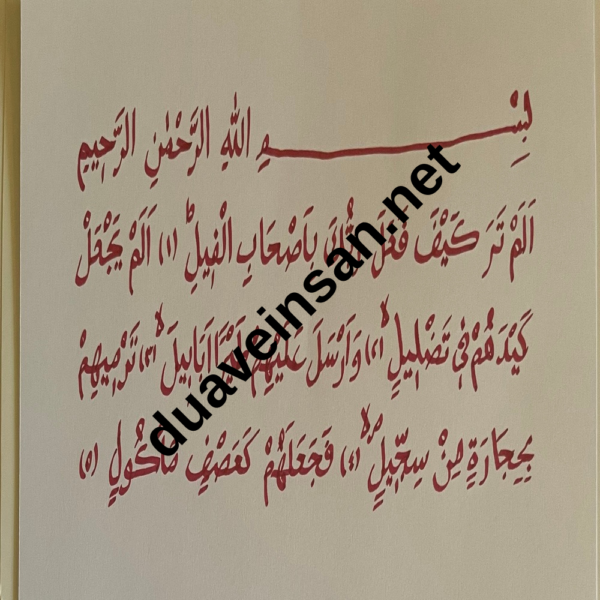 بِسْمِ اللهِ الرَّحْمٰنِ الرَّحِيمِ
اَلَمْ تَرَ كَيْفَ فَعَلَ رَبُّكَ بِاَصْحَابِ الْفِيلِ ﴿١﴾ اَلَمْ يَجْعَلْ
كَيْدَهُمْ فِي تَضْلِيلٍ ﴿٢﴾ وَاَرْسَلَ عَلَيْهِمْ طَيْرًا اَبَابِيلَ ﴿٣﴾ تَرْمِيهِمْ
بِحِجَارَةٍ مِنْ سِجِّيلٍ ﴿٤﴾ فَجَعَلَهُمْ كَعَصْفٍ مَأْكُولٍ ﴿٥﴾
duaveinsan.net